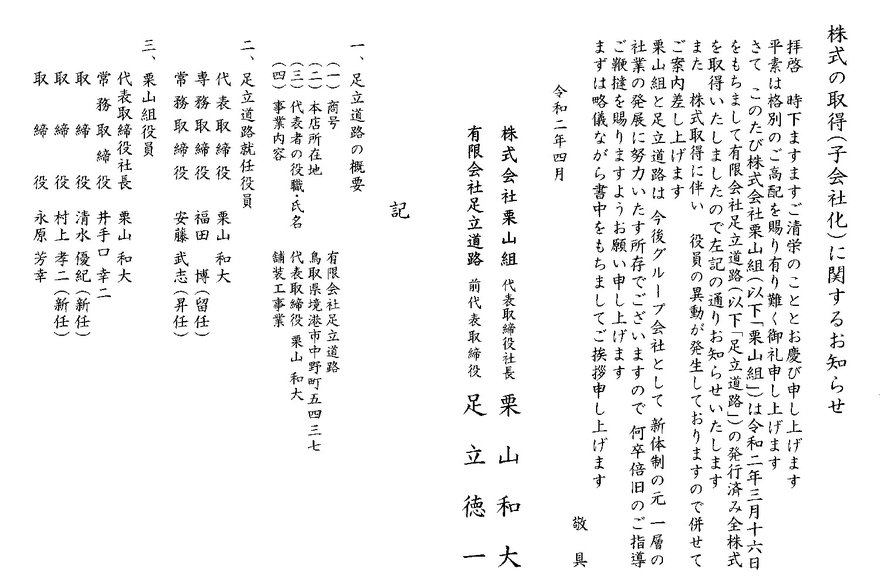 株式の取得(子会社化)に関するお知らせ
拝啓　時下ますますご清栄のこととお慶び申し上げます
平素は格別のご高配を賜り有り難く御礼申し上げます
さて　このたび株式会社栗山組(以下「栗山組」)は令和二年三月十六日
をもちまして有限会社足立道路(以下「足立道路」)の発行済み全株式
を取得いたしましたので左記の通りお知らせいたします
また　株式取得に伴い　役員の異動が発生しておりますので併せて
ご案内差し上げます
栗山組と足立道路は　今後グループ会社として　新体制の元　一層の
社業の発展に努力いたす所存でございますので　何卒倍旧のご指導
ご鞭撻を賜りますようお願い申し上げます
まずは略儀ながら書中をもちましてご挨拶申し上げます
敬具
令和二年四月
株式会社栗山組　代表取締役社長　栗山和大
有限会社足立道路　前代表取締役　足立徳一
記
一、足立道路の概要
(一)商号　有限会社足立道路
(二)本店所在地　鳥取県境港市中野町五四三七
(三)代表者の役職・氏名　代表取締役　栗山　和大
(四)事業内容　舗装工事業
二、足立道路就任役員
代表取締役　栗山　和大
専務取締役　福田　博(留任)
常務取締役　安藤　武志(昇任)
三、栗山組役員
代表取締役社長　栗山　和大
常務取締役　井手口　幸二
取締役　清水　優紀(新任)
取締役　村上　孝二(新任)
取締役　永原　芳幸